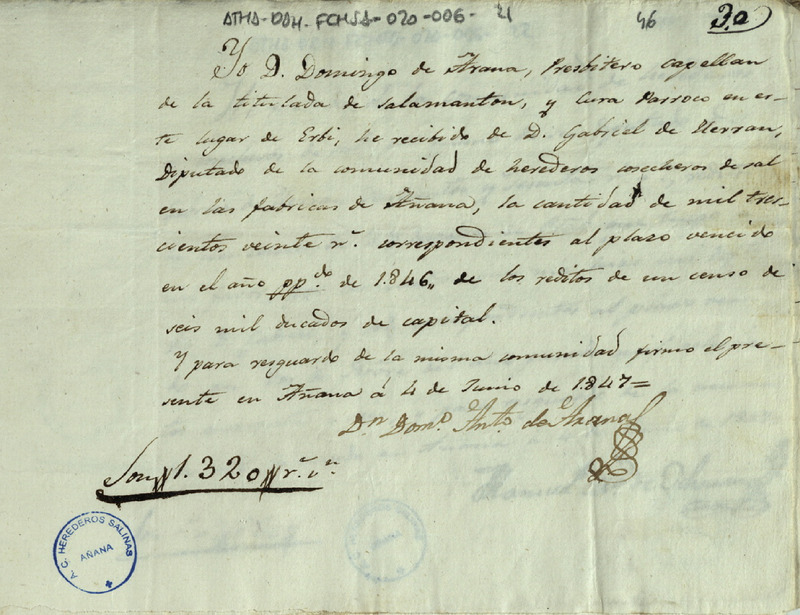 ATHA-DAH-FCHSA-020-006-21
46
30
Yo D. Domingo de Arana, Presbitero capellan
de la titulada de salamanton, y Cura Parroco en es-
te lugar de Erbi, he recibido de D. Gabriel de Herran,
Diputado de la comunidad de herederos cosecheros de sal
en las fabricas de Añana, la cantidad de mil tres-
cientos veinte r.ˢ correspondientes al plazo vencido
en el año pp.do de 1.846,, de los reditos de un censo de
seis mil ducados de capital.
Y para resguardo de la misma comunidad firmo el pre-
sente en Añana á 4 de Junio de 1.847=
Dn Dom.º Ant.º de Arana
Son 1.320 r.ˢ v.ⁿ
A.C. HEREDEROS SALINAS
AÑANA